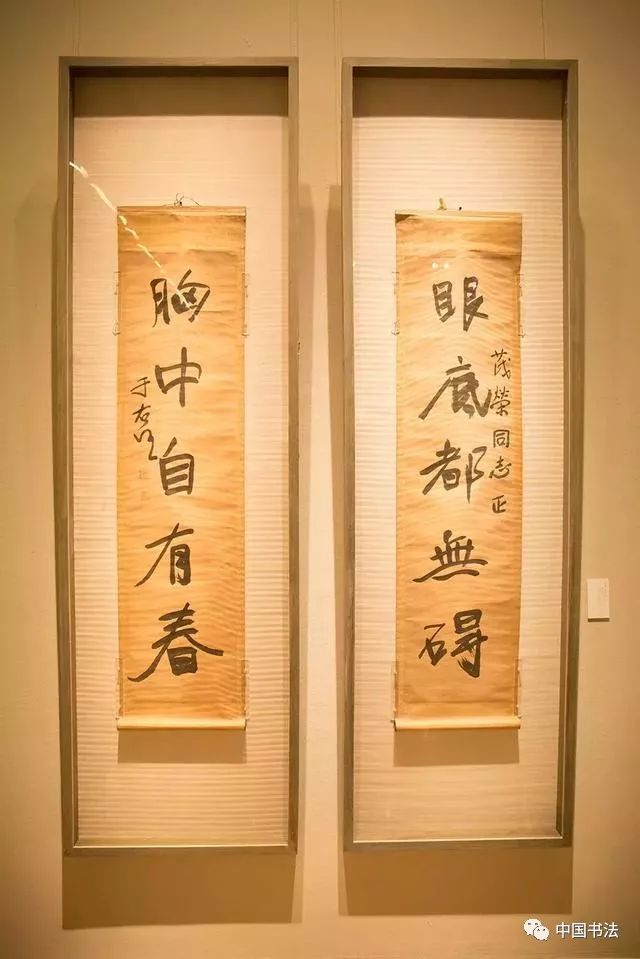 眼底都無碍
茂榮同志正
胸中自有春
于右任
中国书法